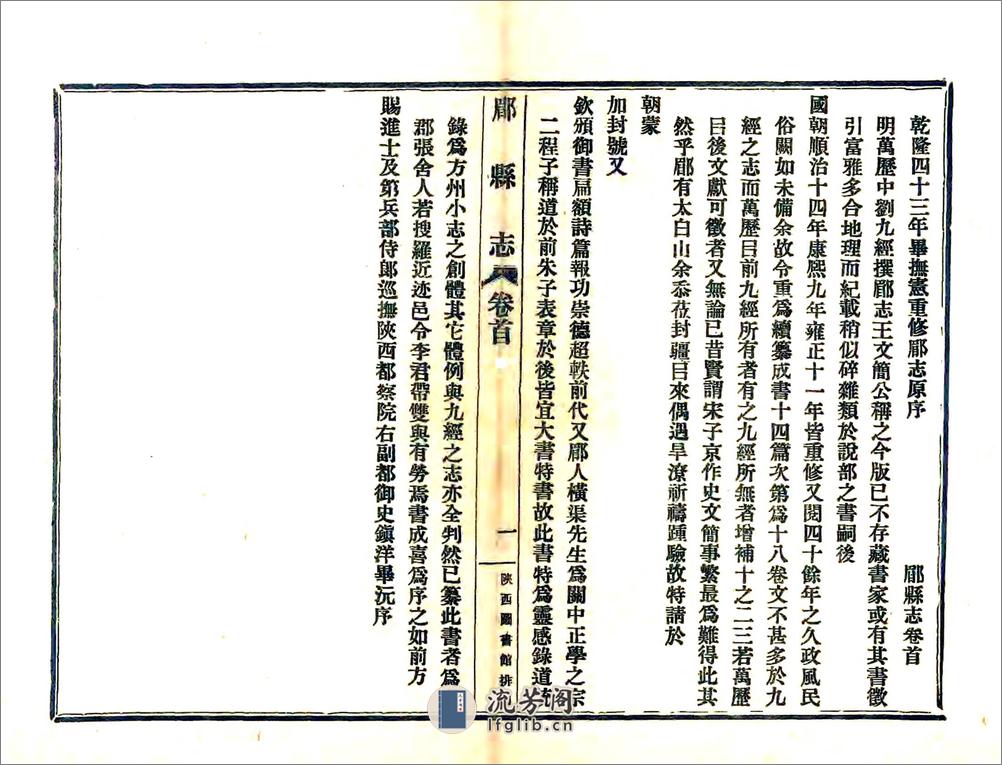 乾隆四十三年畢撫憲重修郿志原序　郿縣志卷首
明萬歷中劉九經撰郿志王文簡公稱之今版已不存藏書家或有其書徵
引富雅多合地理而紀載稍似碎雜類於說部之書嗣後
國朝順治十四年康熙九年雍正十一年皆重修又閱四十餘年之久政風民
俗闕如未備余故令重爲續纂成書十四篇次第爲十八卷文不甚多於九
經之志而萬歷㠯前九經所有者有之九經所無者增補十之二三若萬歷
㠯後文獻可徵者又無論已昔賢謂宋子京作史文簡事繁最爲難得此其
然乎郿有太白山余忝莅封疆㠯來偶遇旱潦祈禱踵驗故特請於
朝蒙
加封號又
欽頒御書扁額詩篇報功崇德超軼前代又郿人橫渠先生爲關中正學之宗
二程子稱道於前朱子表章於後皆宜大書特書故此書特爲靈感錄道統
郿縣志 卷首 一 陝西圖書館排
錄爲方州小志之創體其它體例與九經之志亦全判然已纂此書者爲
郡張舍人若搜羅近迹邑令李君帶雙與有勞焉書成喜爲序之如前方
賜進士及第兵部侍郎巡撫陝西都察院右副都御史鎭洋畢沅序
流芳阁
lfglib.cn